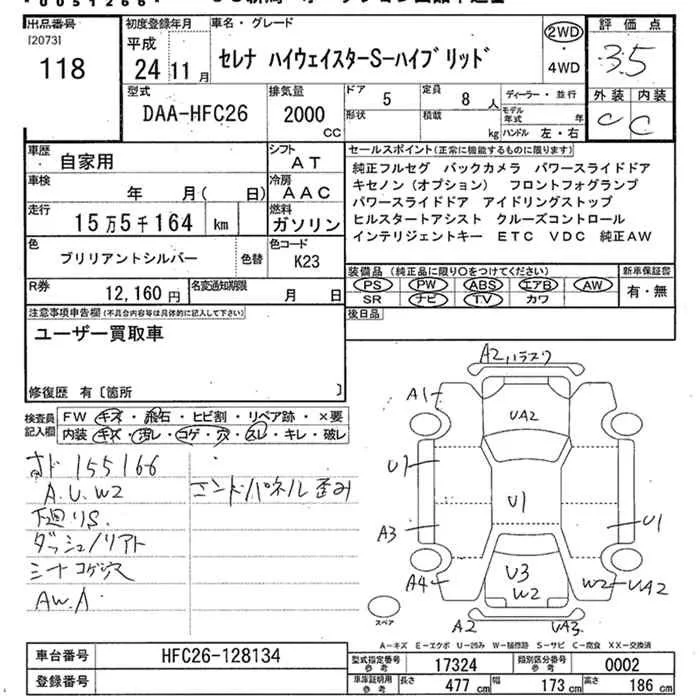 出品番号
[2073]
118
初度登録年月
平成
24 11 月
車名・グレード
セレナ ハイウェイスターS-ハイブリッド
2WD
・
4WD
評価点
3.5
外装 内装
C C
型式
DAA-HFC26
排気量
2000
CC
ドア 5
定員 8 人
形状
積載 kg
ディーラー・並行
モデル年式 年
ハンドル 左・右
車歴 自家用
車検 年 月( 日)
走行 15万5千164 km
シフト
AT
冷房
AAC
燃料
ガソリン
色 ブリリアントシルバー 色替
色コード
K23
R券 12,160 円
名変通知期限
月 日
セールスポイント(正常に機能するものに限ります)
純正フルセグ バックカメラ パワースライドドア
キセノン(オプション) フロントフォグランプ
パワースライドドア アイドリングストップ
ヒルスタートアシスト クルーズコントロール
インテリジェントキー ETC VDC 純正AW
装備品(純正品に限り○をつけてください)
PS PW ABS エアB AW
SR ナビ TV カワ
新車保証書
有・無
後日品
注意事項申告欄(不具合内容等は具体的に記入して下さい)
ユーザー買取車
修復歴 有〔箇所 〕
検査員記入欄
FW キズ・飛石・ヒビ割・リペア跡・×要
内装 キズ・汚レ・コゲ・穴・スレ・キレ・破レ
オド 155166
A.U.W2
下廻りS
ダッシュ/リアト
シートコゲ穴
AW.A
エンドパネル歪み
A2,ハラスリ
A1
UA2
U1
U1
U1
A3
A4
U3
W2
W2
UA2
A2
UA3
スペア
A-キズ E-エクボ U-凹み W-補修跡 S-サビ C-腐食 XX-交換済
車台番号 HFC26-128134
登録番号
型式指定番号 参考 17324
類別区分番号 参考 0002
車庫証明用 参考
長さ 477 cm
幅 173 cm
高さ 186 cm